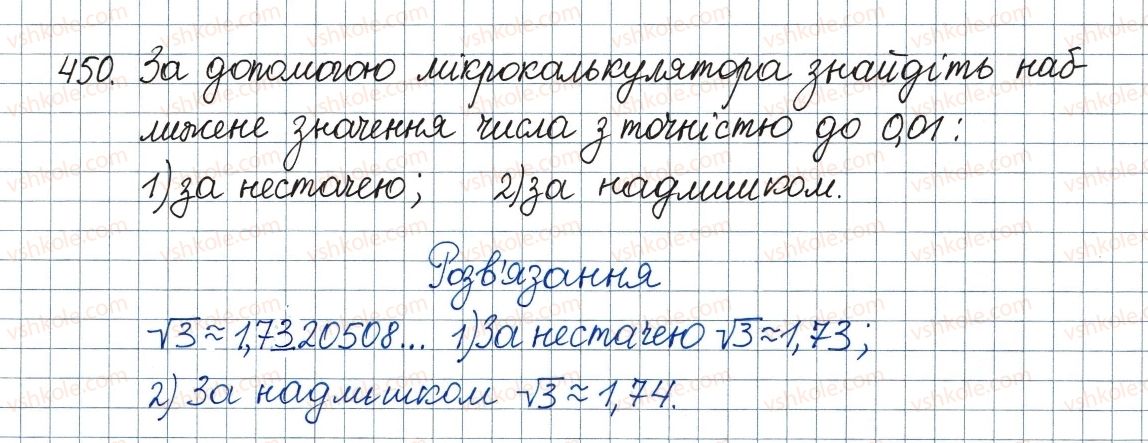 450. За допомогою мікрокалькулятора знайдіть наб-
лижене значення числа з точністю до 0,01:
1) за нестачею; 2) за надлишком.
Розв'язання
√3 ≈ 1,7320508... 1) За нестачею √3 ≈ 1,73;
2) За надлишком √3 ≈ 1,74.